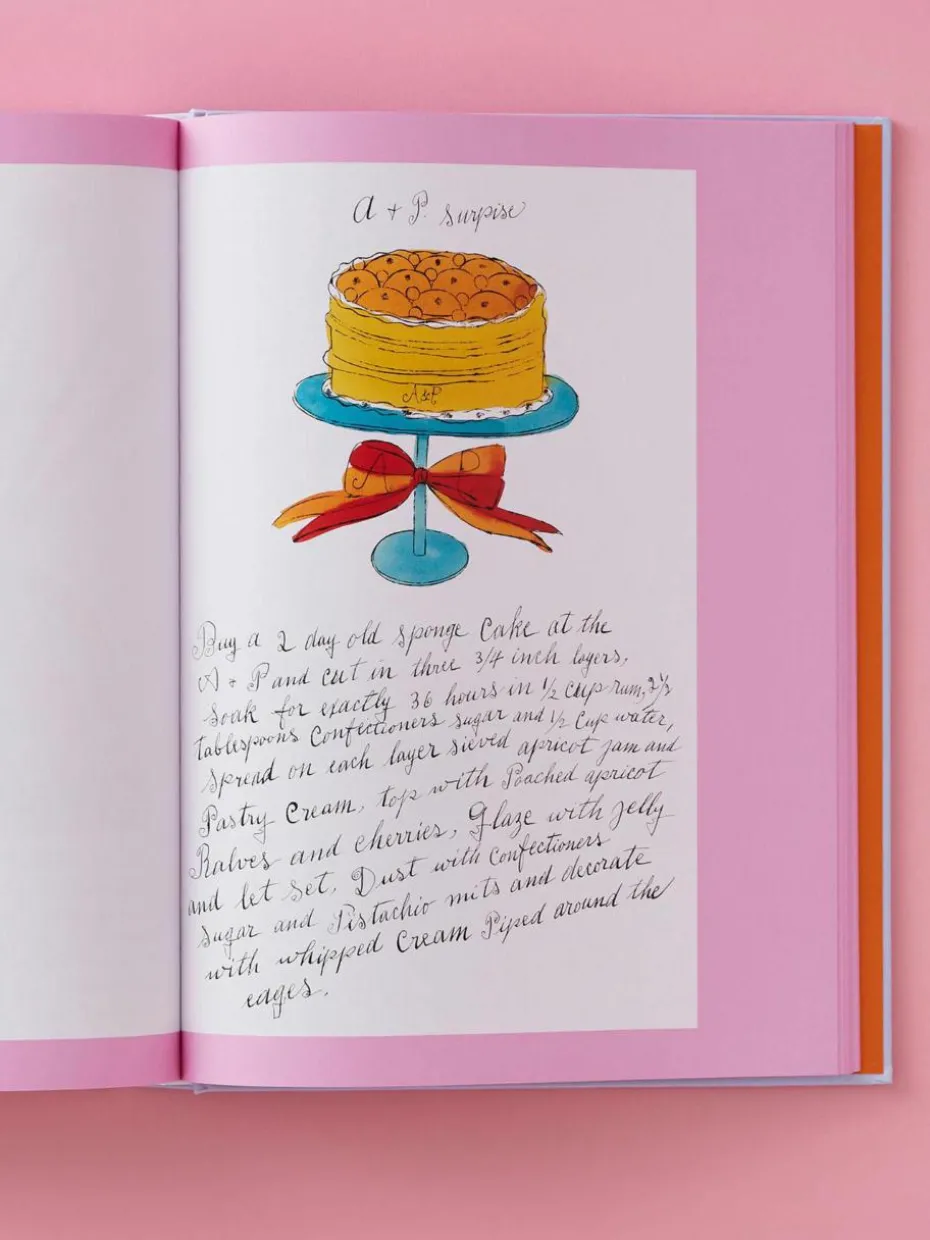 A + P. surpise
A & P
A P
Buy a 2 day old sponge Cake at the
A + P and cut in three 3/4 inch layers,
soak for exactly 36 hours in 1/2 cup rum, 2 1/2
tablespoons Confectioners sugar and 1/2 Cup water,
spread on each layer sieved apricot jam and
Pastry Cream, top with Poached apricot
Halves and cherries, Glaze with jelly
and let set, Dust with Confectioners
sugar and Pistachio nuts and decorate
with whipped Cream Piped around the
edges.